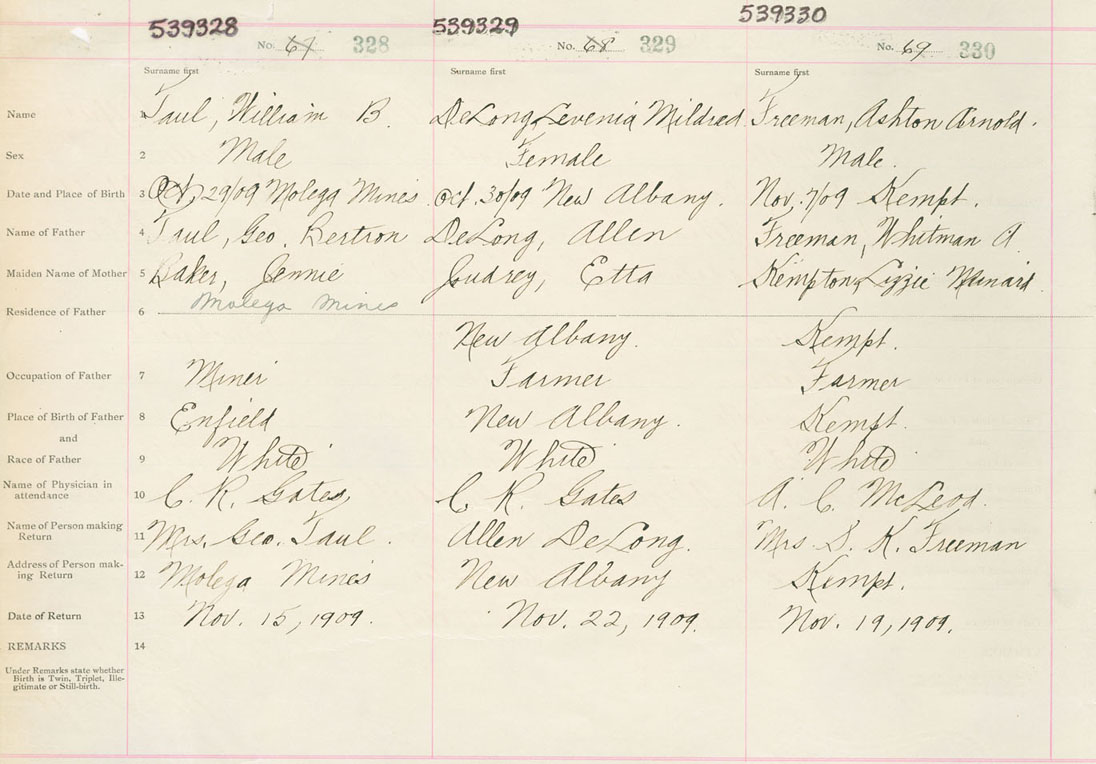 539328 539329 539330
No. 67 328 No. 68 329 No. 69 330
Surname first Surname first Surname first
Name 1 Taul, William B. DeLong Levenia Mildred. Freeman, Ashton Arnold.
Sex 2 Male Female Male.
Date and Place of Birth 3 Oct, 29/09 Molega Mines. Oct. 30/09 New Albany. Nov. 7/09 Kempt.
Name of Father 4 Taul, Geo. Bertron DeLong, Allen Freeman, Whitman A
Maiden Name of Mother 5 Baker, Jennie Etta Kempton, Lizzie
Molega Mines
Residence of Father 6
New Albany. Kempt.
Occupation of Father 7 Miner Farmer Farmer
Place of Birth of Father 8 Enfield New Albany. Kempt.
and
Race of Father 9 White White White
Name of Physician in
attendance 10 C. R. Gates, C R. Gates A. C. McLeod.
Name of Person making
Return 11 Mrs. Geo. Taul. Allen DeLong. Mrs S. K. Freeman
Address of Person mak-
ing Return 12 Molega Mines New Albany Kempt.
Date of Return 13 Nov. 15, 1909. Nov. 22, 1909. Nov. 19, 1909.
REMARKS 14
Under Remarks state whether
Birth is Twin, Triplet, Ille-
gitimate or Still-birth.